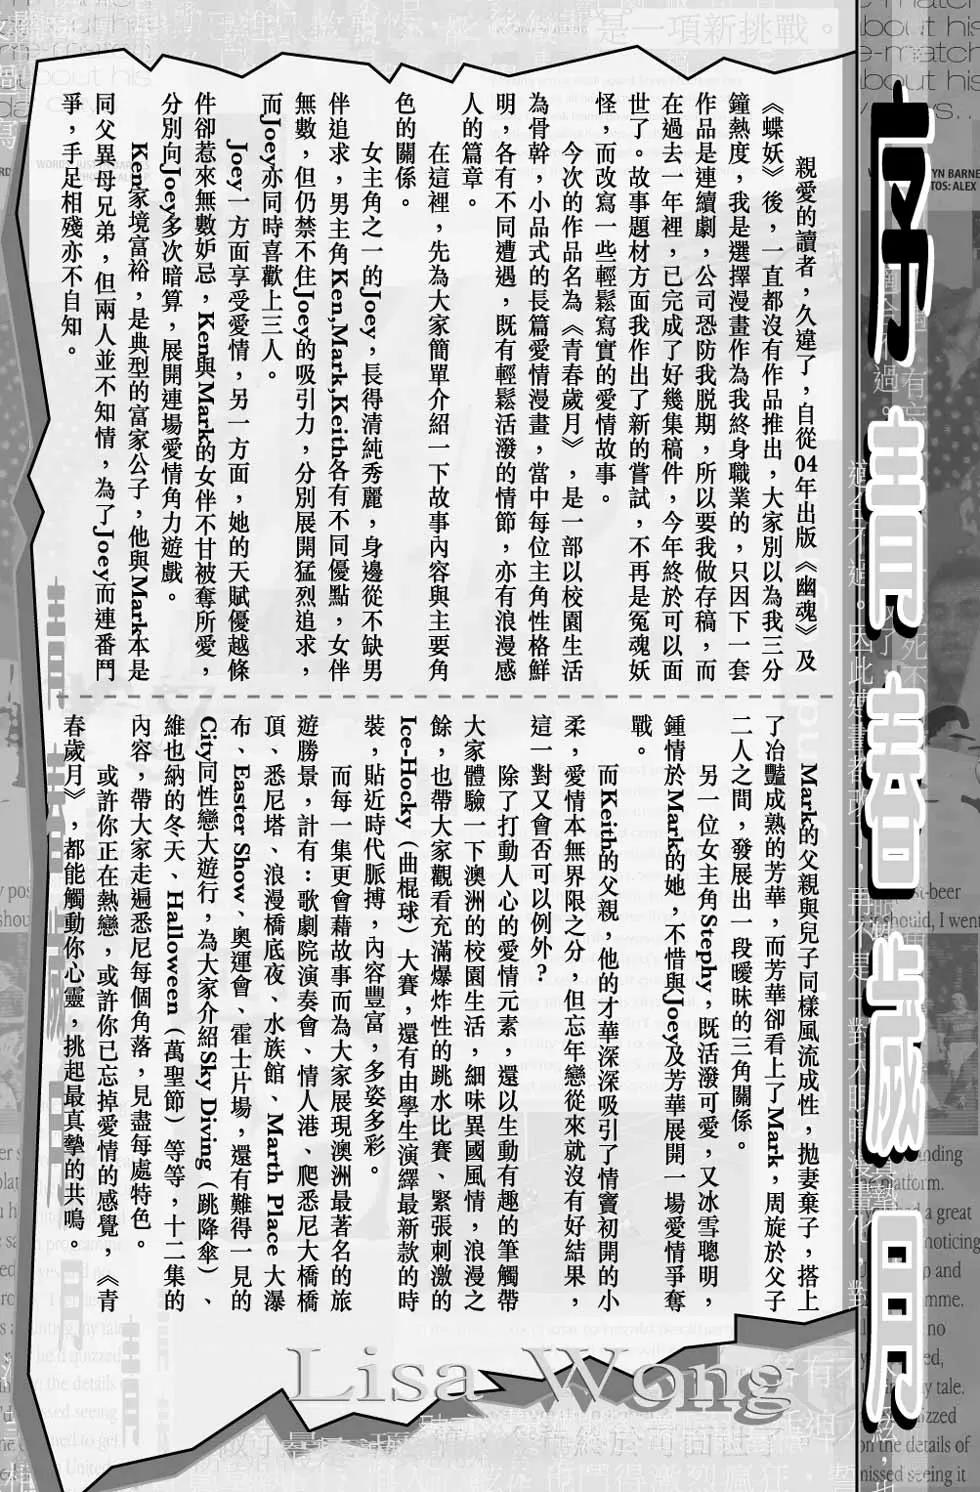 青春歲月
親愛的讀者，久違了，自從04年出版《幽魂》及
《蝶妖》後，一直都沒有作品推出，大家別以為我三分
鐘熱度，我是選擇漫畫作為我終身職業的，只因下一套
作品是連續劇，公司恐防我脫期，所以要我做存稿，而
在過去一年裡，已完成了好幾集稿件，今年終於可以面
世了。故事題材方面我作出了新的嘗試，不再是冤魂妖
怪，而改寫一些輕鬆寫實的愛情故事。
今次的作品名為《青春歲月》，是一部以校園生活
為骨幹，小品式的長篇愛情漫畫，當中每位主角性格鮮
明，各有不同遭遇，既有輕鬆活潑的情節，亦有浪漫感
人的篇章。
在這裡，先為大家簡單介紹一下故事內容與主要角
色的關係。
女主角之一的Joey，長得清純秀麗，身邊從不缺男
伴追求，男主角Ken,Mark,Keith各有不同優點，女伴
無數，但仍禁不住Joey的吸引力，分別展開猛烈追求，
而Joey亦同時喜歡上三人。
Joey一方面享受愛情，另一方面，她的天賦優越條
件卻惹來無數妒忌，Ken與Mark的女伴不甘被奪所愛，
分別向Joey多次暗算，展開連場愛情角力遊戲。
Ken家境富裕，是典型的富家公子，他與Mark本是
同父異母兄弟，但兩人並不知情，為了Joey而連番鬥
爭，手足相殘亦不自知。
Mark的父親與兒子同樣風流成性，拋妻棄子，搭上
了冶豔成熟的芳華，而芳華卻看上了Mark，周旋於父子
二人之間，發展出一段曖昧的三角關係。
另一位女主角Stephy，既活潑可愛，又冰雪聰明，
鍾情於Mark的她，不惜與Joey及芳華展開一場愛情爭奪
戰。
而Keith的父親，他的才華深深吸引了情竇初開的小
柔，愛情本無界限之分，但忘年戀從來就沒有好結果，
這一對又會否可以例外？
除了打動人心的愛情元素，還以生動有趣的筆觸帶
大家體驗一下澳洲的校園生活，細味異國風情，浪漫之
餘，也帶大家觀看充滿爆炸性的跳水比賽、緊張刺激的
Ice-Hocky（曲棍球）大賽，還有由學生演繹最新款的時
裝，貼近時代脈搏，內容豐富，多姿多彩。
而每一集更會藉故事而為大家展現澳洲最著名的旅
遊勝景，計有：歌劇院演奏會、情人港、爬悉尼大橋橋
頂、悉尼塔、浪漫橋底夜、水族館、Marth Place大瀑
布、Easter Show、奧運會、霍士片場，還有難得一見的
City同性戀大遊行，為大家介紹Sky Diving（跳降傘）、
維也納的冬天、Halloween（萬聖節）等等，十二集的
內容，帶大家走遍悉尼每個角落，見盡每處特色。
或許你正在熱戀，或許你已忘掉愛情的感覺，《青
春歲月》，都能觸動你心靈，挑起最真摯的共鳴。
Lisa Wong